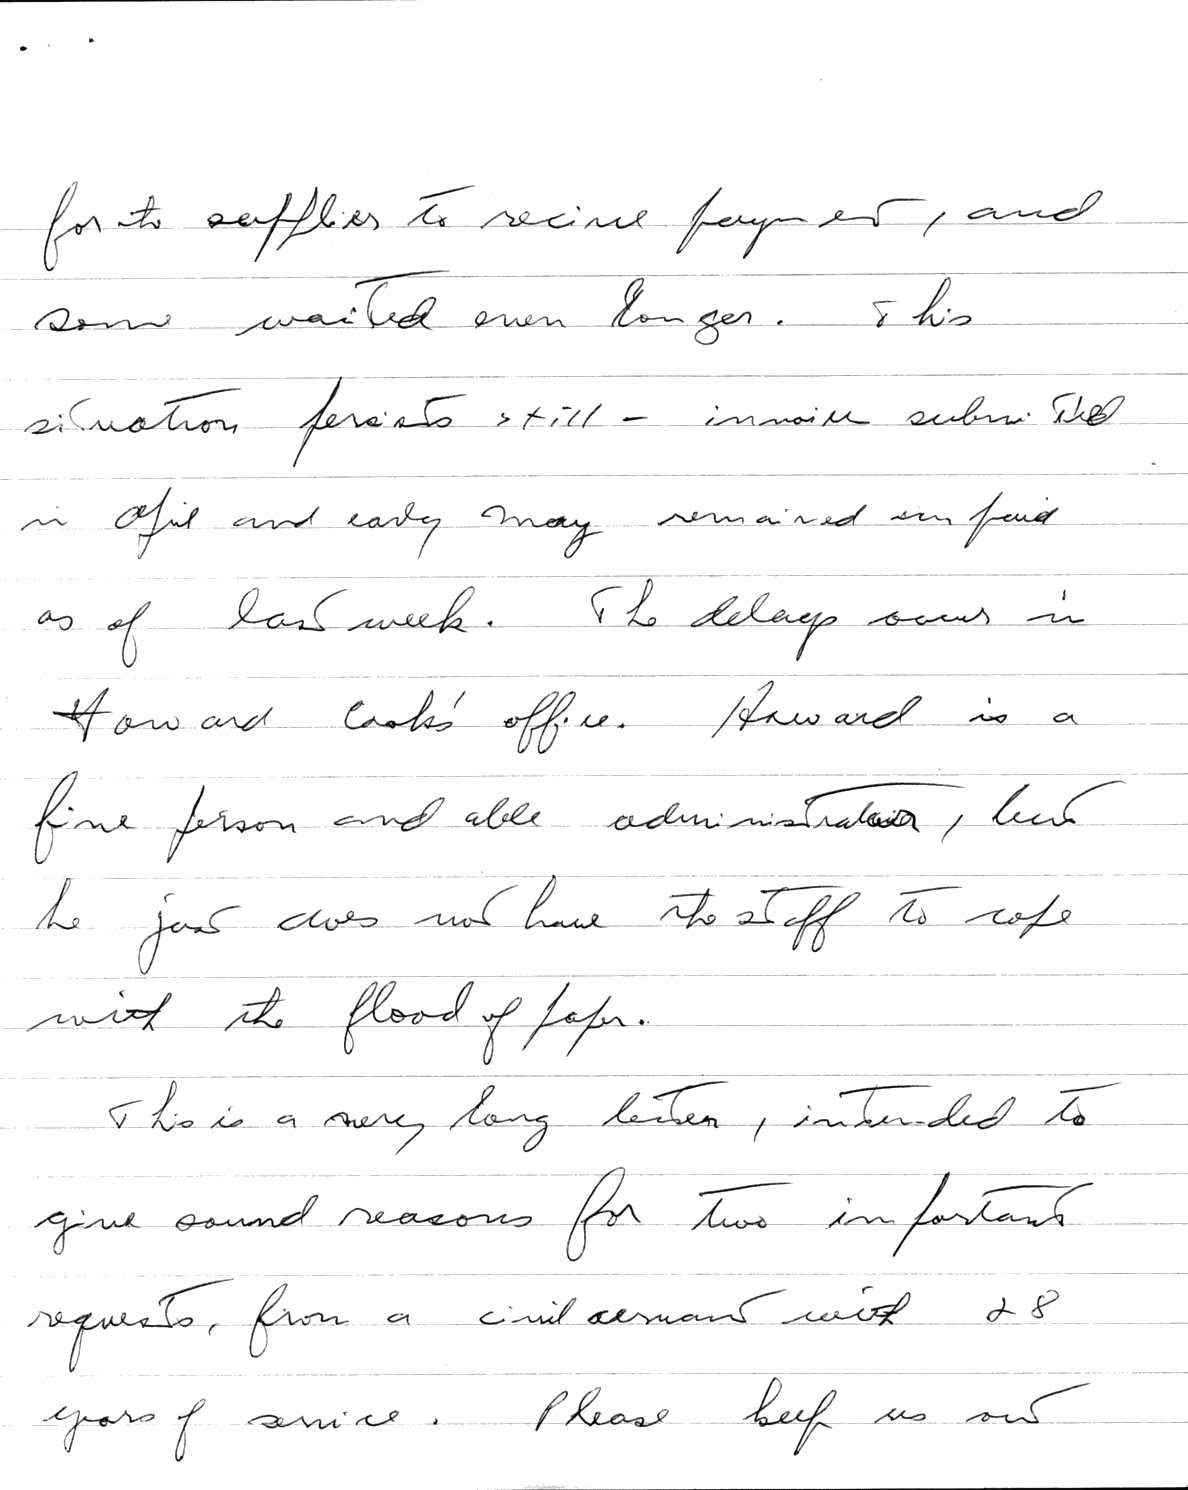 for the suppliers to receive payment, and
some waited even longer. This
situation persists still - invoices submitted
in April and early May remained unpaid
as of last week. The delays occur in
Howard Cook's office. Howard is a
fine person and able administrator, but
he just does not have the staff to cope
with the flood of paper.
This is a very long letter, intended to
give sound reasons for two important
requests, from a civil servant with 28
years of service. Please keep us out